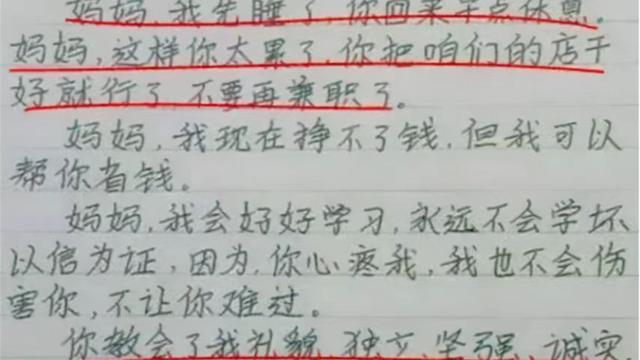 妈妈,我先睡了,你回来早点休息。
妈妈,这样你太累了,你把咱们的店干
好就行了,不要再兼职了。
妈妈,我现在挣不了钱,但我可以
帮你省钱。
妈妈,我会好好学习,永远不会学坏
以信为证,因为,你心疼我,我也不会伤
害你,不让你难过。
你教会了我礼貌 独立 坚强、诚实